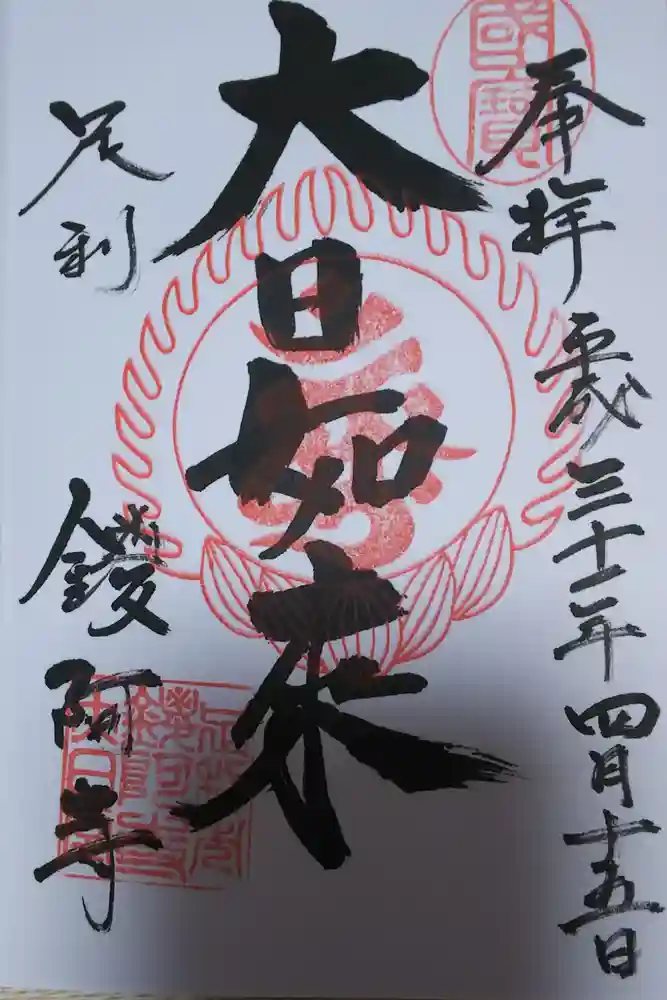 國寶
奉拝 平成三十一年四月十五日
大日如来
足利
鑁阿寺